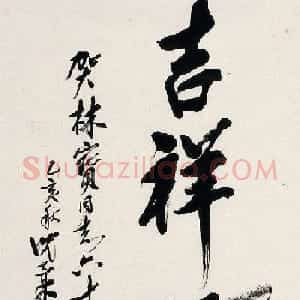 吉祥
贺林宝同志六十
乙亥秋沈
Shufaziliao.com